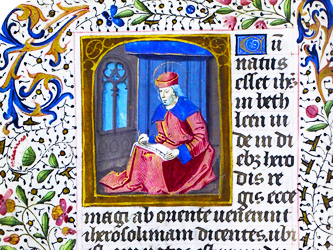 Cū
natus
esset ihs
in beth
leem iu
de in di
ebz hero
dis re
gis ecce
magi ab oriente venerunt
iherosolimam dicentes ubi